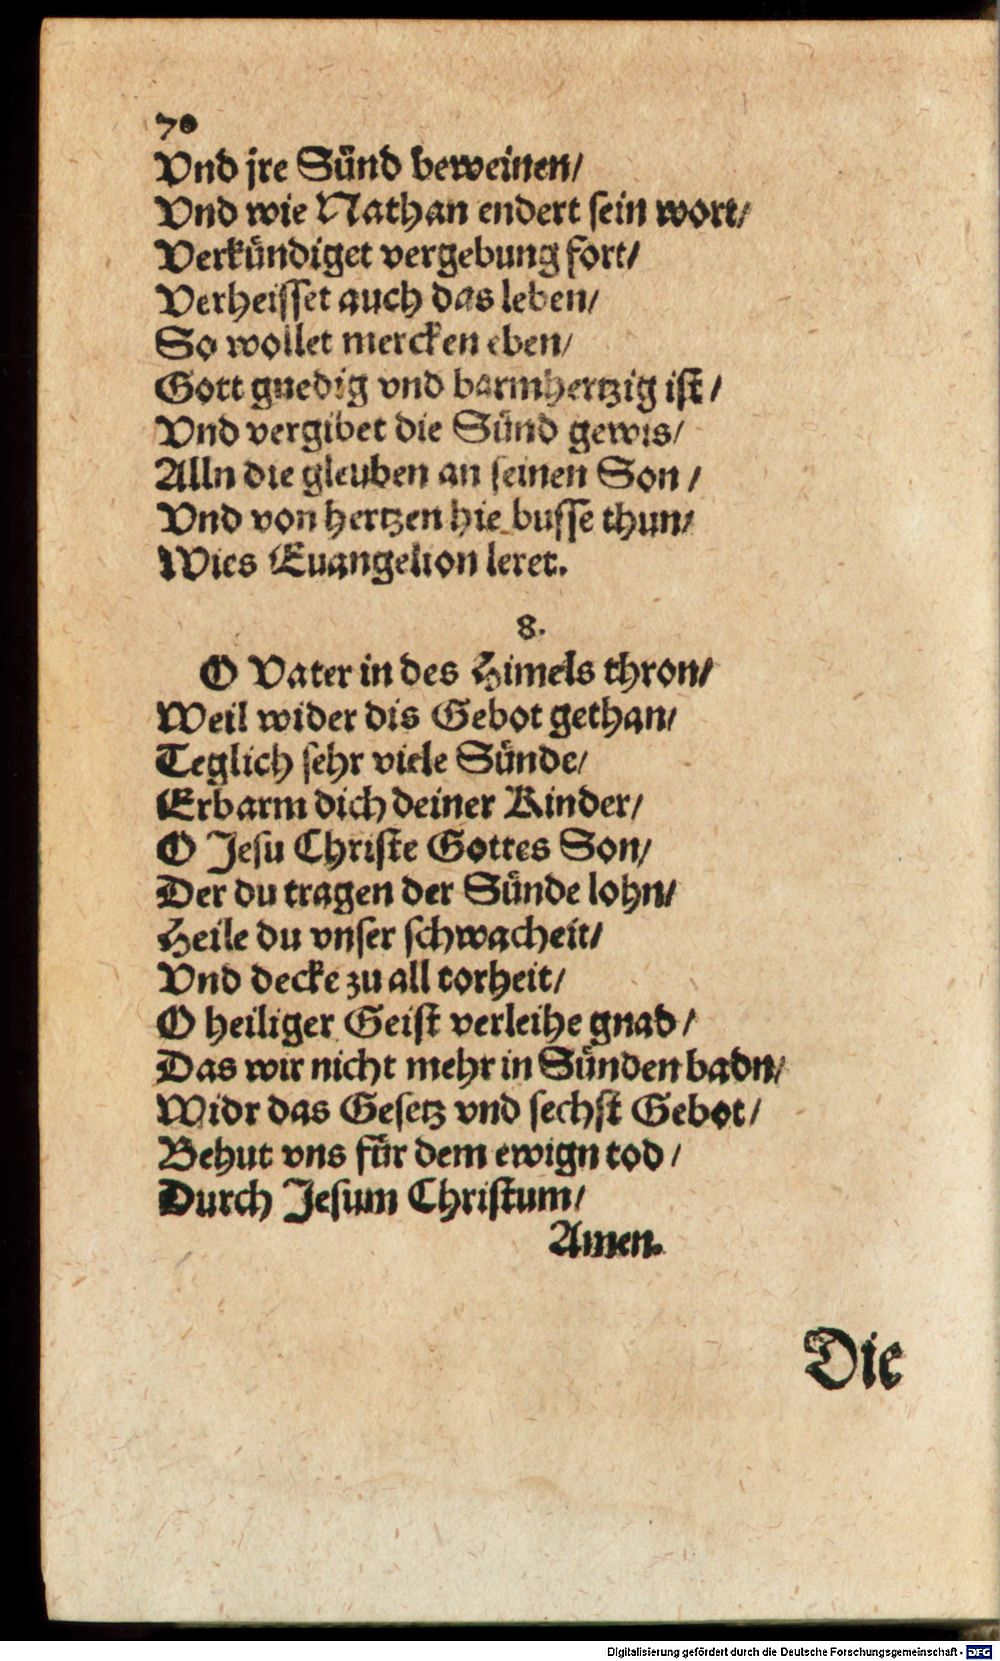 70
Vnd jre Sünd beweinen/
Vnd wie Nathan endert sein wort/
Verkündiget vergebung fort/
Verheisset auch das leben/
So wollet mercken eben/
Gott gnedig vnd barmhertzig ist/
Vnd vergibet die Sünd gewis/
Alln die gleuben an seinen Son/
Vnd von hertzen hie busse thun/
Wies Euangelion leret.
8.
O Vater in des Himels thron/
Weil wider dis Gebot gethan/
Teglich sehr viele Sünde/
Erbarm dich deiner Kinder/
O Jesu Christe Gottes Son/
Der du tragen der Sünde lohn/
Heile du vnser schwacheit/
Vnd decke zu all torheit/
O heiliger Geist verleihe gnad/
Das wir nicht mehr in Sünden badn/
Widr das Gesetz vnd sechst Gebot/
Behut vns für dem ewign tod/
Durch Jesum Christum/
Amen.
Die
Digitalisierung gefördert durch die Deutsche Forschungsgemeinschaft - DFG